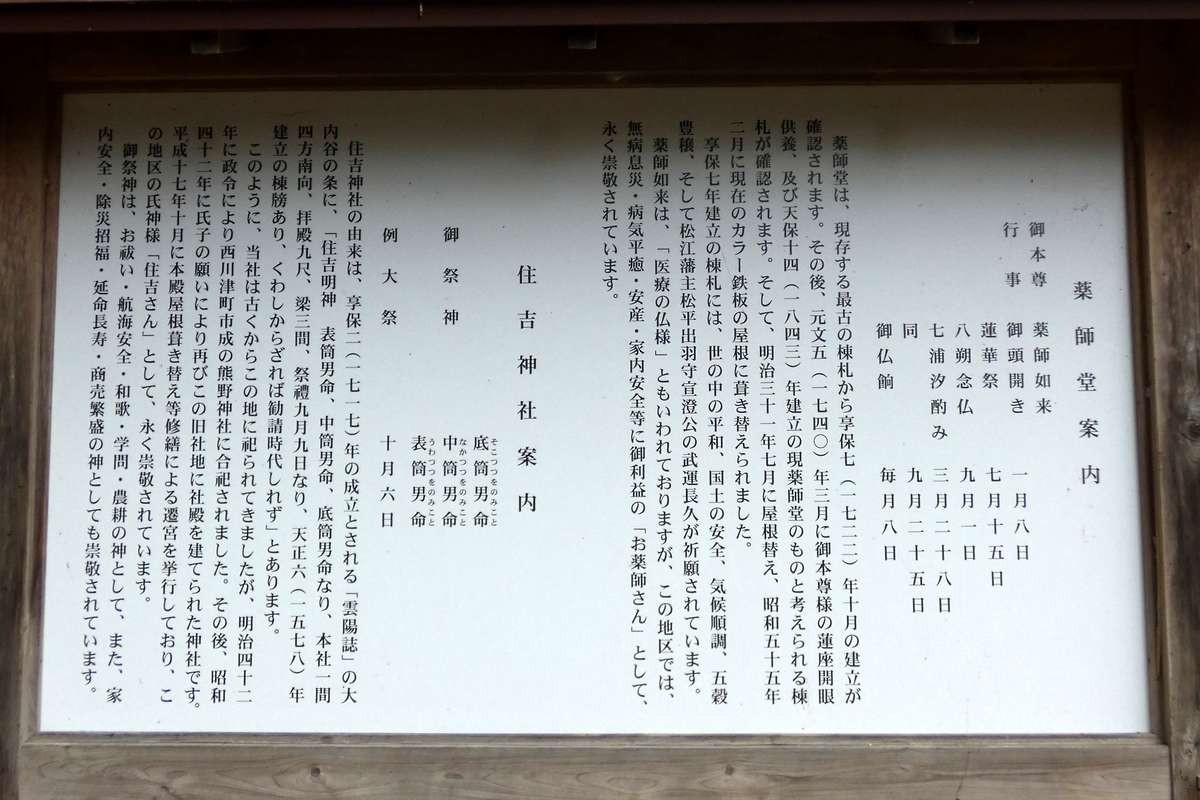 薬師堂案内
御本尊 薬師如来
行事 御頭開き 一月八日
蓮華祭 七月十五日
八朔念仏 九月一日
七浦汐酌み 三月二十八日
同 九月二十五日
御仏餉 毎月八日
薬師堂は、現存する最古の棟札から享保七(一七二二)年十月の建立が
確認されます。その後、元文五(一七四〇)年三月に御本尊様の蓮座開眼
供養、及び天保十四(一八四三)年建立の現薬師堂のものと考えられる棟
札が確認されます。そして、明治三十一年七月に屋根替え、昭和五十五年
二月に現在のカラー鉄板の屋根に葺き替えられました。
享保七年建立の棟札には、世の中の平和、国土の安全、気候順調、五穀
豊穣、そして松江藩主松平出羽守宣澄公の武運長久が祈願されています。
薬師如来は、「医療の仏様」ともいわれておりますが、この地区では、
無病息災・病気平癒・安産・家内安全等に御利益の「お薬師さん」として、
永く崇敬されています。
住吉神社案内
御祭神 底筒男命 そこつつをのみこと
中筒男命 なかつつをのみこと
表筒男命 うわつつをのみこと
例大祭 十月六日
住吉神社の由来は、享保二(一七一七)年の成立とされる「雲陽誌」の大
内谷の条に、「住吉明神 表筒男命、中筒男命、底筒男命なり、本社一間
四方南向、拝殿九尺、梁三間、祭禮九月九日なり、天正六(一五七八)年
建立の棟牓あり、くわしからざれば勧請時代しれず」とあります。
このように、当社は古くからこの地に祀られてきましたが、明治四十二
年に政令により西川津町市成の熊野神社に合祀されました。その後、昭和
四十二年に氏子の願いにより再びこの旧社地に社殿を建てられた神社です。
平成十七年十月に本殿屋根葺き替え等修繕による遷宮を挙行しており、こ
の地区の氏神様「住吉さん」として、永く崇敬されています。
御祭神は、お祓い・航海安全・和歌・学問・農耕の神として、また、家
内安全・除災招福・延命長寿・商売繁盛の神としても崇敬されています。